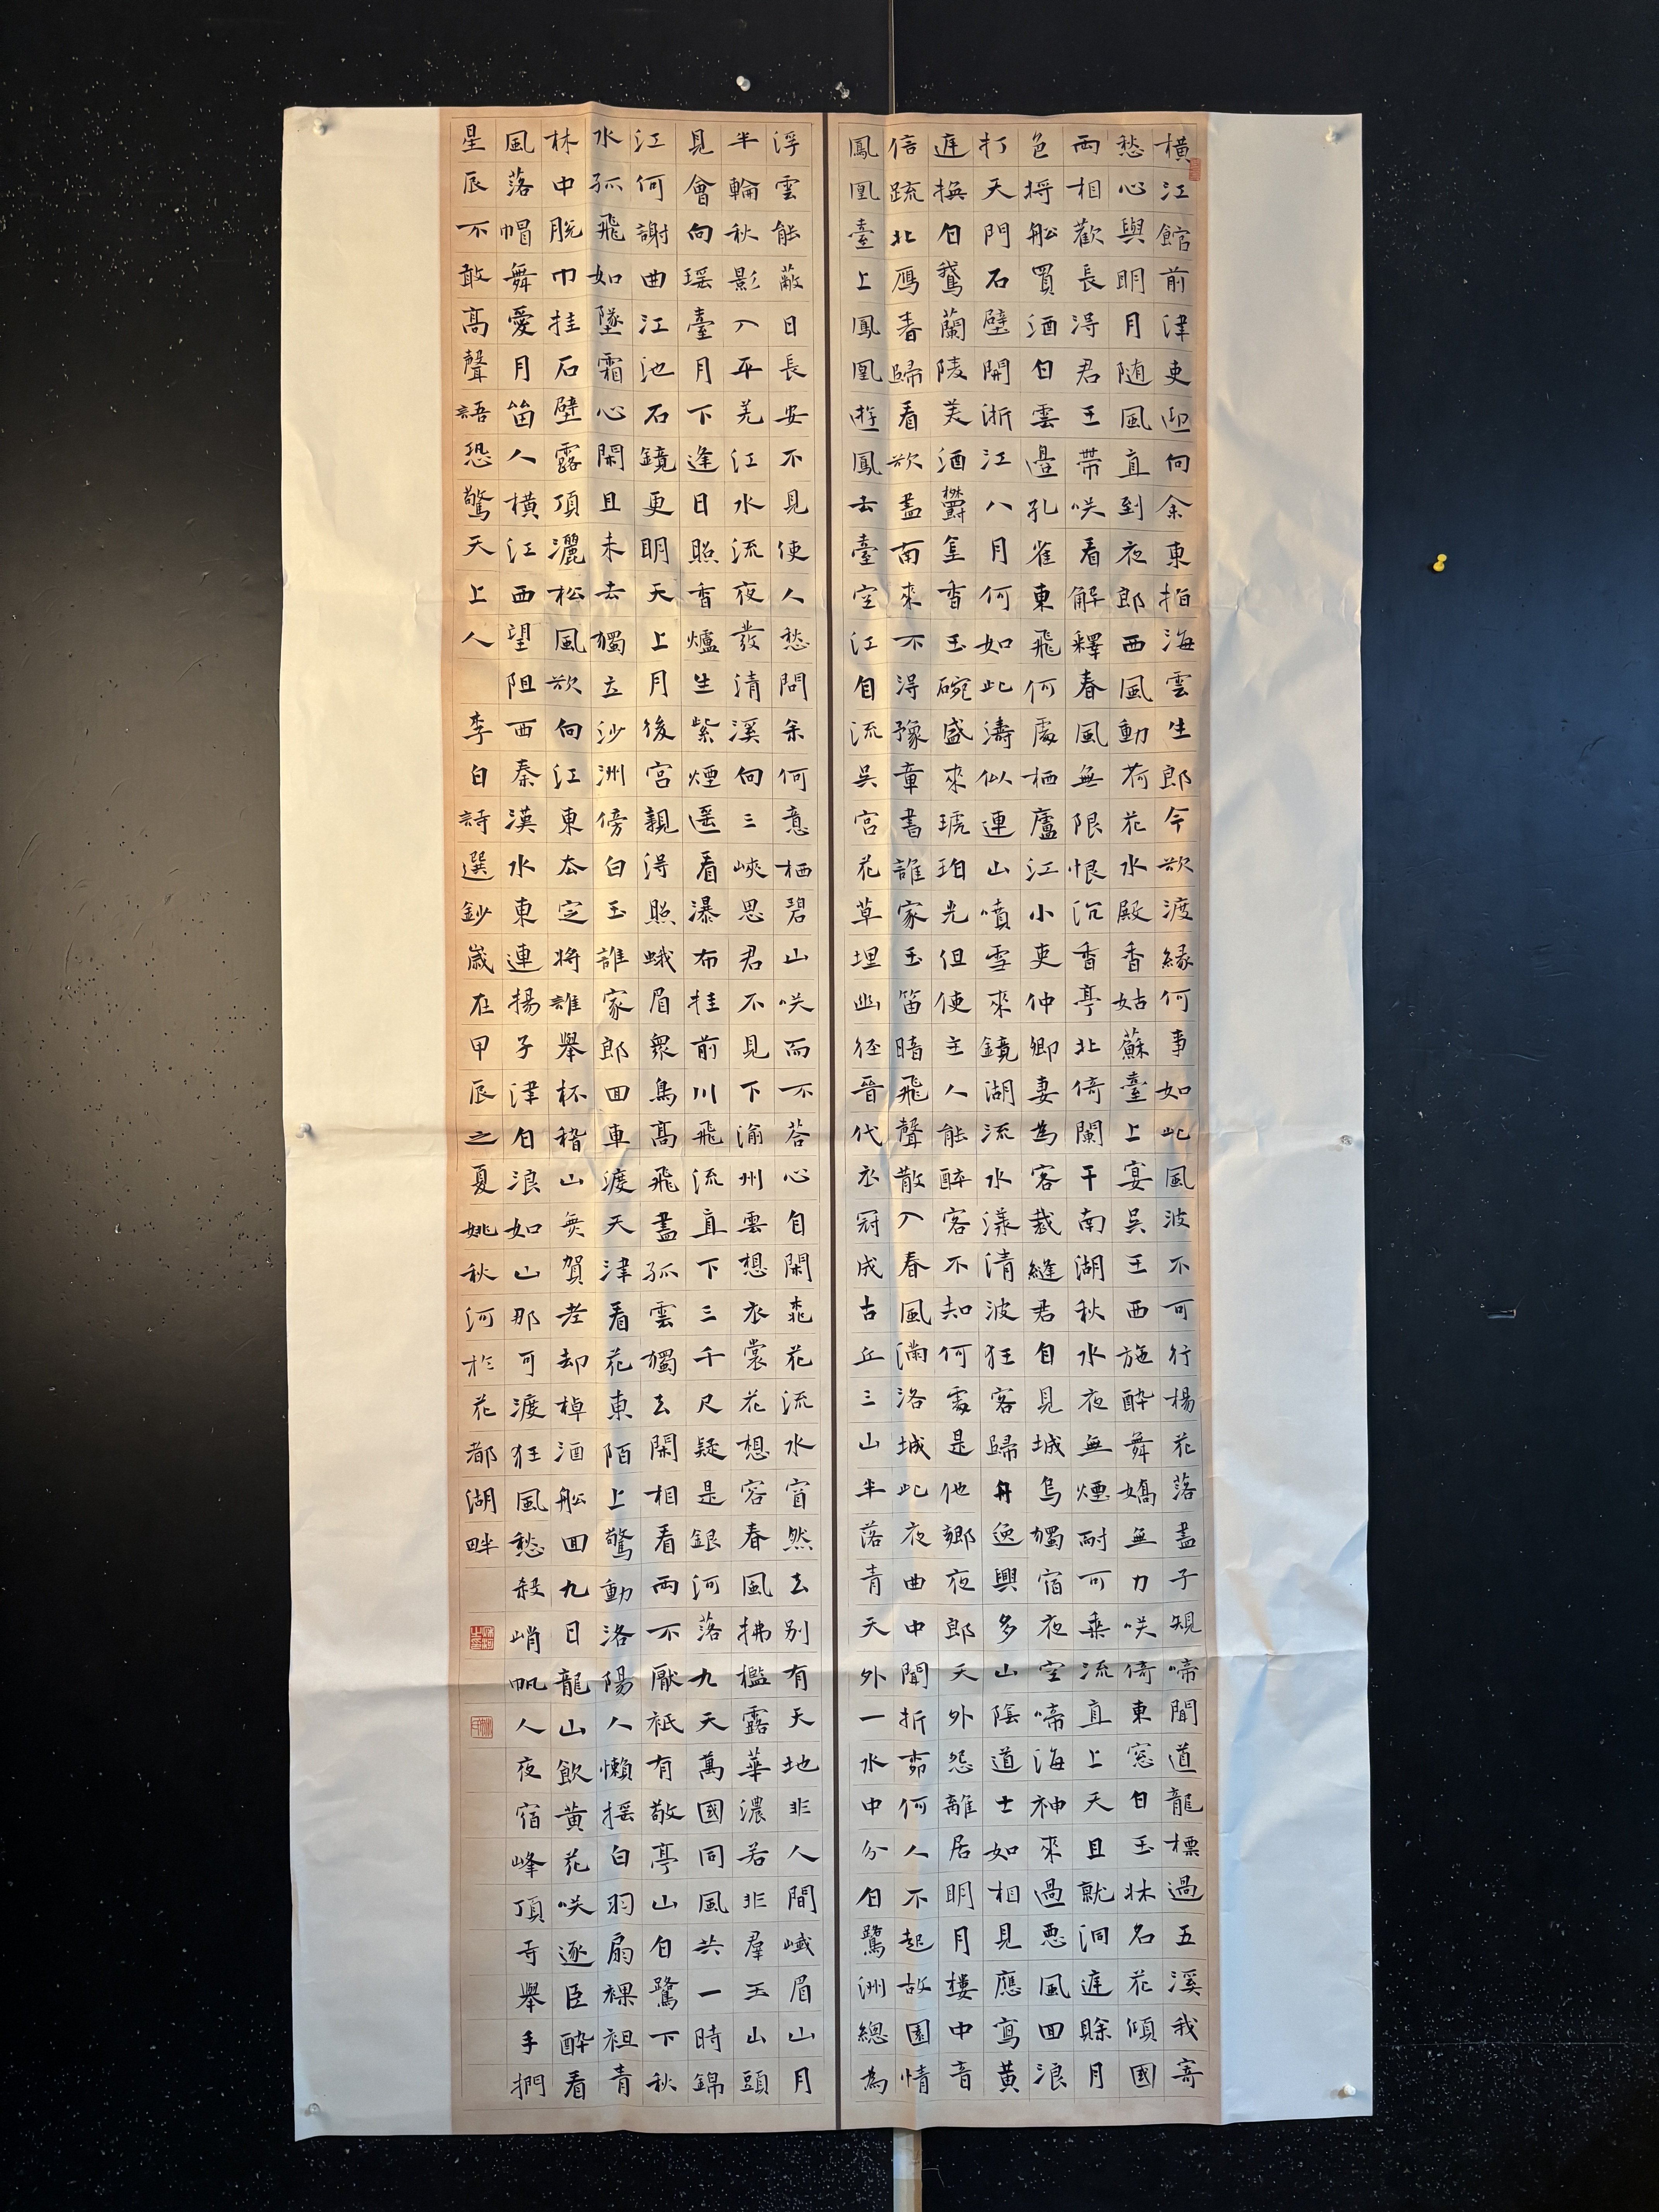 橫江館前津吏迎向余東指海雲生郎今欲渡緣何事如此風波不可行楊花落盡子規啼聞道龍標過五溪我寄
愁心與明月随風直到夜郎西風動荷花水殿香姑蘇臺上宴吳王西施醉舞嬌無力咲倚東窓白玉牀名花傾國
兩相歡長得君王帶咲看解釋春風無限恨沉香亭北倚闌干南湖秋水夜無煙耐可乘流直上天且就洞庭賒月
色將船買酒白雲邊孔雀東飛何處栖廬江小吏仲卿妻為客裁縫君自見城烏獨宿夜空啼海神來過惡風回浪
打天門石壁開浙江八月何如此濤似連山噴雪來鏡湖流水漾清波狂客歸舟逸興多山陰道士如相見應寫黃
庭換白鵞蘭陵美酒欝金香玉碗盛來琥珀光但使主人能醉客不知何處是他鄉夜郎天外怨離居明月樓中音
信疏北鴈春歸看欲盡南來不得豫章書誰家玉笛暗飛聲散入春風滿洛城此夜曲中聞折桺何人不起故園情
鳳凰臺上鳳凰遊鳳去臺空江自流吳宮花草埋幽徑晉代衣冠成古丘三山半落青天外一水中分白鷺洲總為
浮雲能蔽日長安不見使人愁問余何意栖碧山咲而不荅心自閑桃花流水窅然去別有天地非人間峨眉山月
半輪秋影入平羌江水流夜發清溪向三峽思君不見下渝州雲想衣裳花想容春風拂檻露華濃若非羣玉山頭
見會向瑤臺月下逢日照香爐生紫煙遥看瀑布挂前川飛流直下三千尺疑是銀河落九天萬國同風共一時錦
江何謝曲江池石鏡更明天上月後宮親得照蛾眉眾鳥高飛盡孤雲獨去閑相看兩不厭祇有敬亭山白鷺下秋
水孤飛如墜霜心閑且未去獨立沙洲傍白玉誰家郎回車渡天津看花東陌上驚動洛陽人懶搖白羽扇裸袒青
林中脫巾挂石壁露頂灑松風欲向江東去定將誰舉杯稽山無賀老却棹酒船回九日龍山飲黃花咲逐臣醉看
風落帽舞愛月留人橫江西望阻西秦漢水東連揚子津白浪如山那可渡狂風愁殺峭帆人夜宿峰頂寺舉手捫
星辰不敢高聲語恐驚天上人 李白詩選鈔歲在甲辰之夏姚秋河於花都湖畔